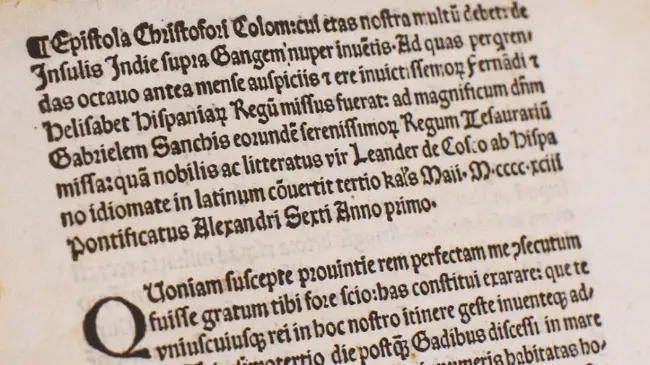 ¶ Epistola Christofori Colom: cui etas nostra multū debet: de
Insulis Indie supra Gangem nuper inuētis. Ad quas perqren⸗
das octauo antea mense auspiciis ⁊ ere inuictissemoꝝ Fernādi ⁊
Helisabet Hispaniaꝝ Regū missus fuerat: ad magnificum dn̄m
Gabrielem Sanchis eorundē serenissimoꝝ Regum Tesaurariū
missa: quā nobilis ac litteratus vir Leander de Cosco ab Hispa
no idiomate in latinum cōuertit tertio kal's Maii. M.cccc.xciii
Pontificatus Alexandri Sexti Anno primo.
QUoniam suscepte prouintie rem perfectam me ↄsecutum
fuisse gratum tibi fore scio: has constitui exarare: que te
vniuscuiusqꝫ rei in hoc nostro itinere geste inuenteqꝫ ad⸗
die postqꝫ Gadibus discessi in mare
numeris habitatas ho⸗